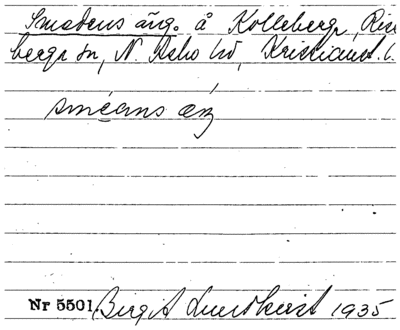 Smedens äng. å Kolleberga, Rise
berga sn, N. Åsbo hd, Kristianst. l.
sméəns æŋ
Nr 5501 Birgit Lundkvist 1935